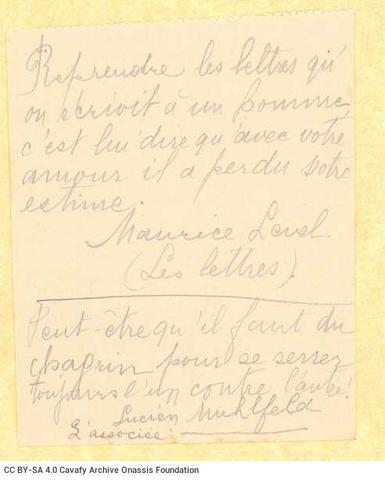 Reprendre les lettres qu'
on écrivit à un homme,
c'est lui dire qu'avec votre
amour il a perdu votre
estime.
Maurice Level
(Les lettres).
Peut-être qu'il faut du
chagrin pour se serrer
toujours l'un contre l'autre!
Lucien Muhlfeld
L'associée
CC BY-SA 4.0 Cavafy Archive Onassis Foundation